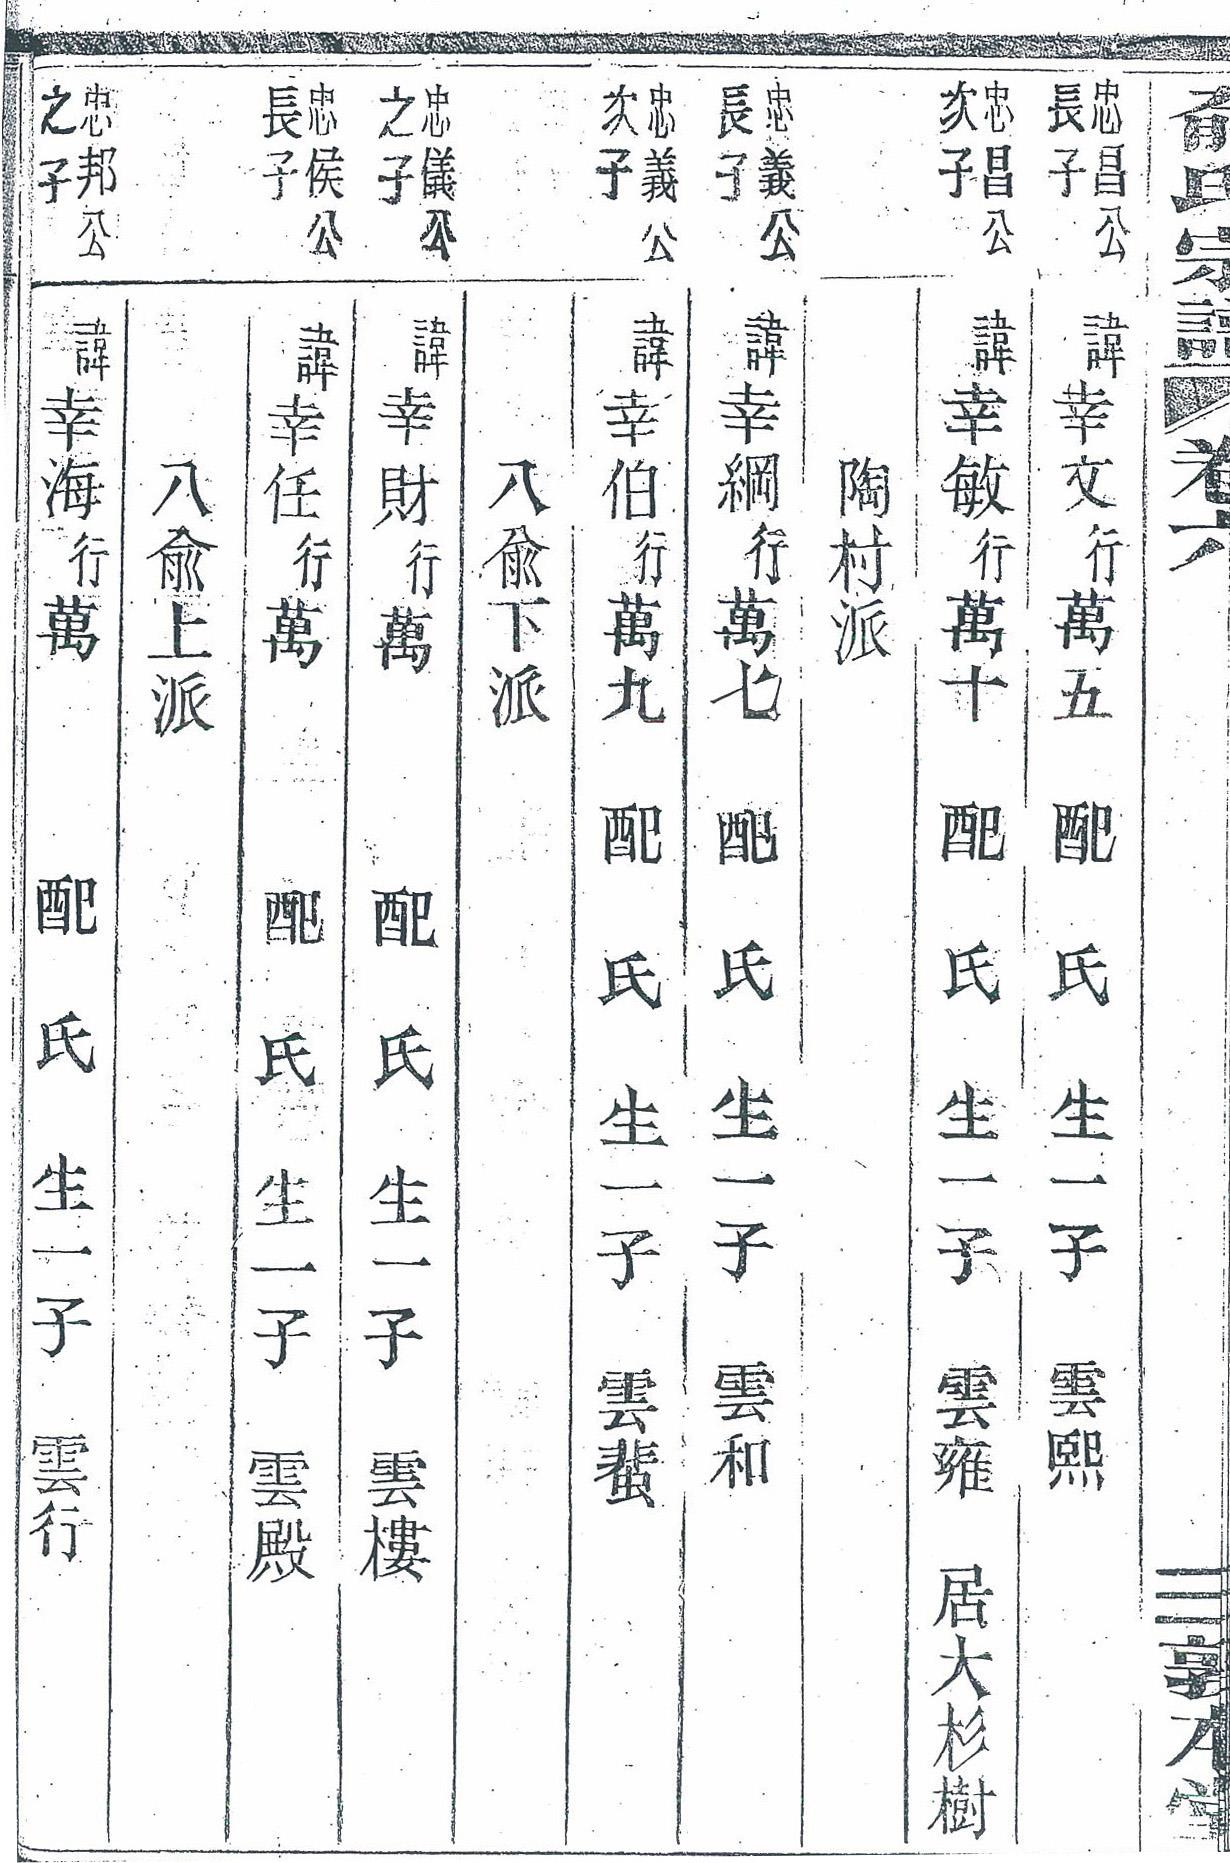 俞氏宗譜 卷六 三 敦本堂
忠昌公長子 諱幸文行萬五 配 氏 生一子 雲熙
忠昌公次子 諱幸敏行萬十 配 氏 生一子 雲雍 居大杉樹
陶村派
忠義公長子 諱幸綱行萬七 配 氏 生一子 雲和
忠義公次子 諱幸伯行萬九 配 氏 生一子 雲蜚
八俞下派
忠儀公之子 諱幸財行萬 配 氏 生一子 雲樓
忠侯公長子 諱幸任行萬 配 氏 生一子 雲殿
八俞上派
忠邦公之子 諱幸海行萬 配 氏 生一子 雲行